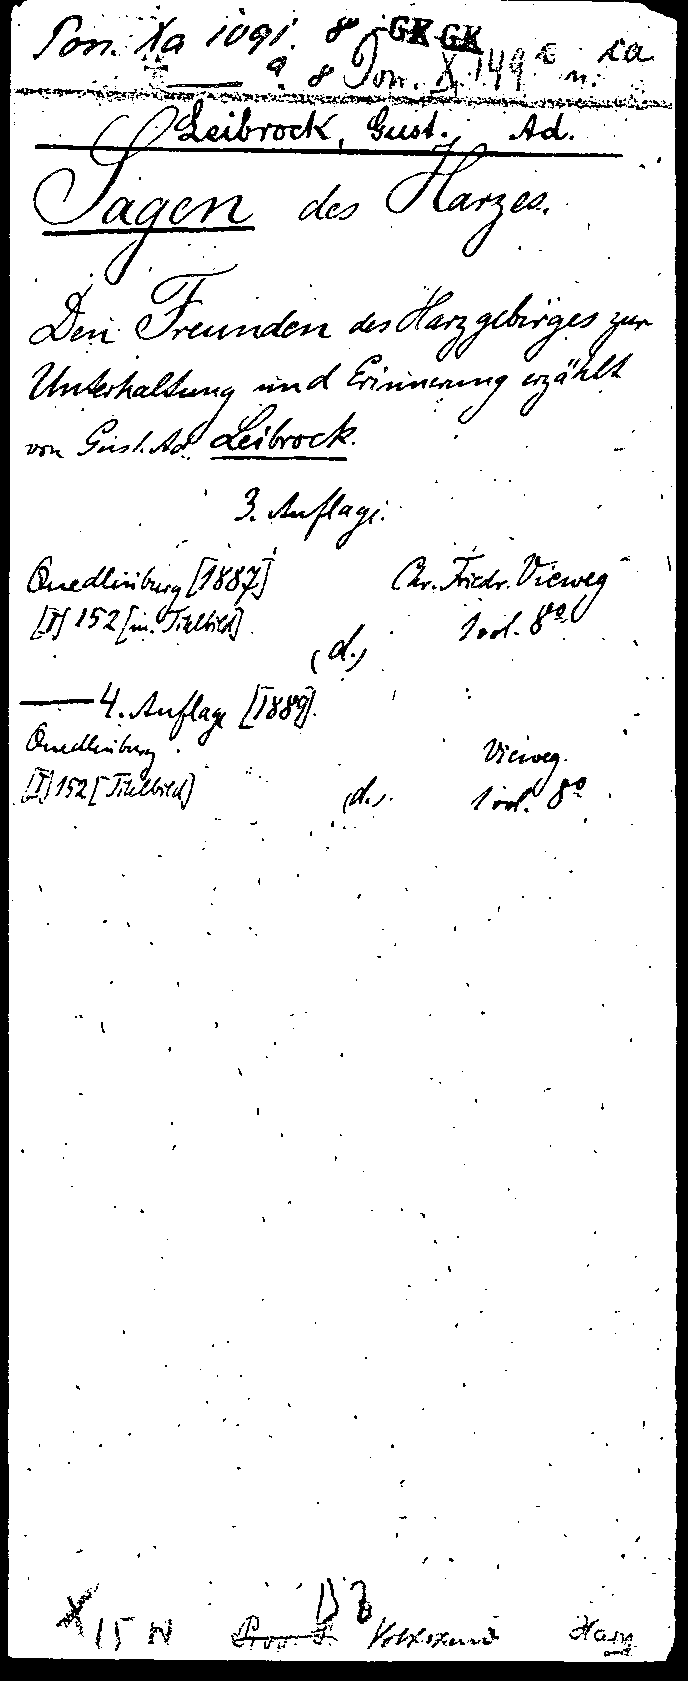 Pon. Xa 1091. 8 GK GK
a. 8 Pon. X 149 n. ca
Leibrock, Gust. Ad.
Sagen des Harzes.
Den Freunden des Harzgebirges zur
Unterhaltung und Erinnerung erzählt
von Gust. Ad. Leibrock.
3. Auflage.
Quedlinburg [1887] Chr. Friedr. Vieweg
[I] 152 [m. Titelbild] 1 vol. 8º
(d.)
4. Auflage [1889].
Quedlinburg Vieweg.
[I] 152 [Titelbild] (d.). 1 vol. 8º
X 15 Volkskunde Harz